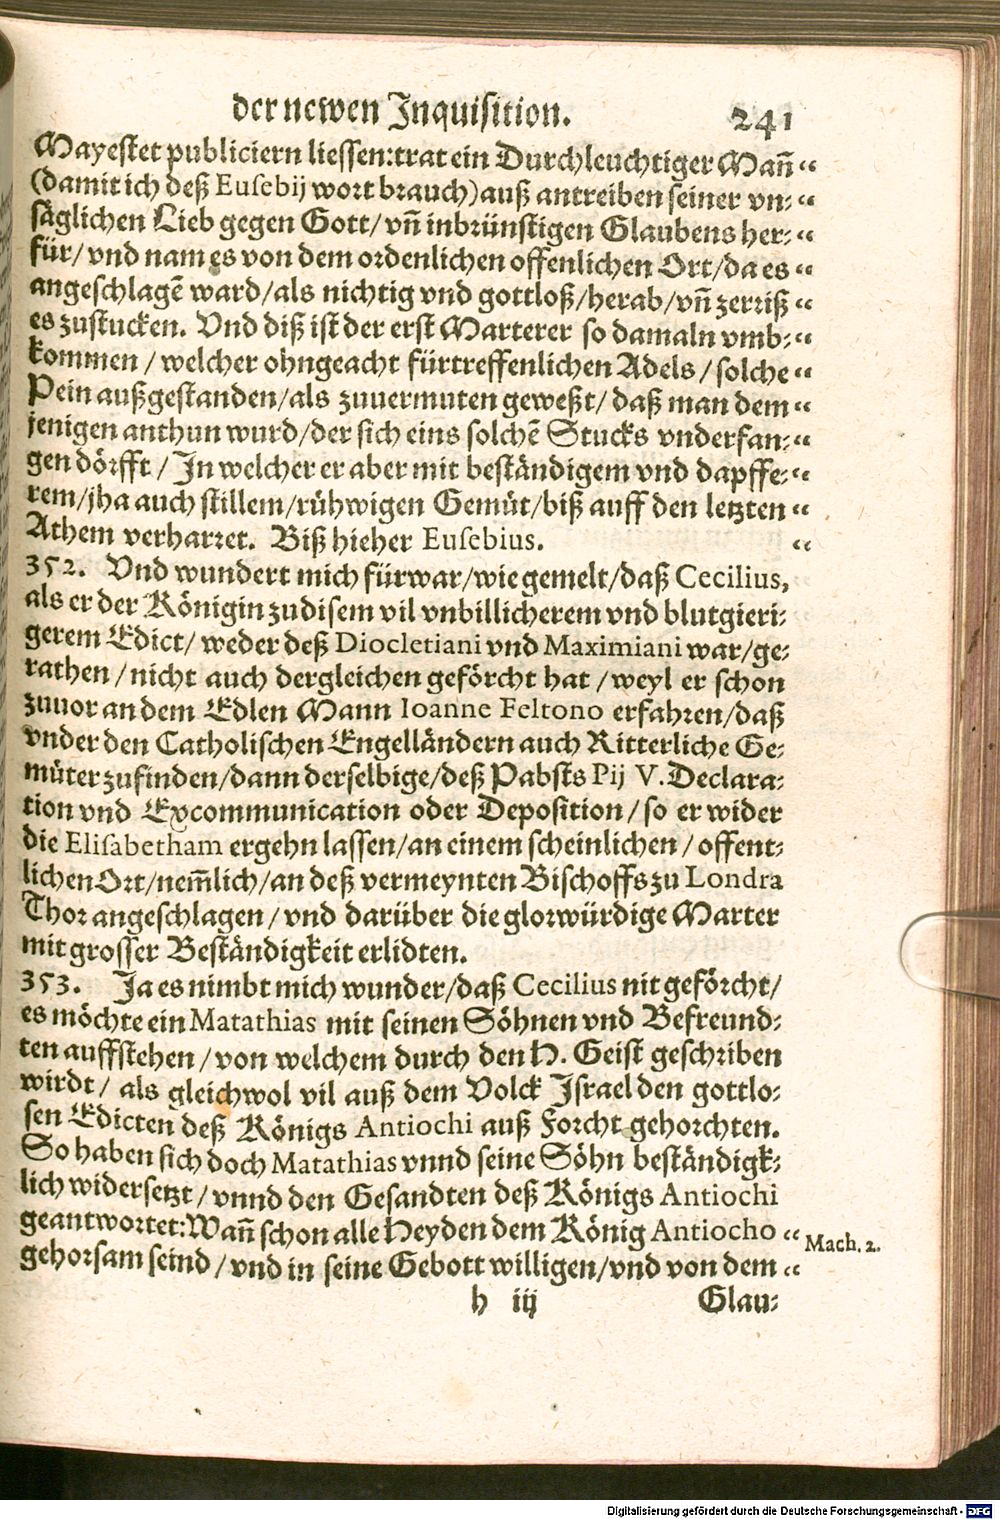 der newen Inquisition. 241
Mayestet publiciern liessen: trat ein Durchleuchtiger Mañ “
(damit ich deß Eusebij wort brauch) auß antreiben seiner vn- “
säglichen Lieb gegen Gott/ vñ inbrünstigen Glaubens her- “
für/ vnd nam es von dem ordenlichen offenlichen Ort/ da es “
angeschlagẽ ward/ als nichtig vnd gottloß/ herab/ vñ zerriß “
es zustucken. Vnd diß ist der erst Marterer so damaln vmb- “
kommen/ welcher ohngeacht fürtreffenlichen Adels/ solche “
Pein außgestanden/ als zuuermuten geweßt/ daß man dem “
jenigen anthun wurd/ der sich eins solchẽ Stucks vnderfan- “
gen dörfft/ In welcher er aber mit beständigem vnd dapffe- “
rem/ jha auch stillem/ rühwigen Gemüt/ biß auff den letzten “
Athem verharret. Biß hieher Eusebius. “
352. Vnd wundert mich fürwar/ wie gemelt/ daß Cecilius,
als er der Königin zu disem vil vnbillicherem vnd blutgieri-
gerem Edict/ weder deß Diocletiani vnd Maximiani war/ ge-
rathen/ nicht auch dergleichen geförcht hat/ weyl er schon
zuuor an dem Edlen Mann Ioanne Feltono erfahren/ daß
vnder den Catholischen Engelländern auch Ritterliche Ge-
müter zufinden/ dann derselbige/ deß Pabsts Pij V. Declara-
tion vnd Excommunication oder Deposition/ so er wider
die Elisabetham ergehn lassen/ an einem scheinlichen/ offent-
lichen Ort/ nem̃lich/ an deß vermeynten Bischoffs zu Londra
Thor angeschlagen/ vnd darüber die glorwürdige Marter
mit grosser Beständigkeit erlidten.
353. Ja es nimbt mich wunder/ daß Cecilius nit geförcht/
es möchte ein Matathias mit seinen Söhnen vnd Befreund-
ten auffstehen/ von welchem durch den H. Geist geschriben
wirdt/ als gleichwol vil auß dem Volck Israel den gottlo-
sen Edicten deß Königs Antiochi auß Forcht gehorchten.
So haben sich doch Matathias vnnd seine Söhn beständigk-
lich widersetzt/ vnnd den Gesandten deß Königs Antiochi
geantwortet: Wañ schon alle Heyden dem König Antiocho “ Mach. 2.
gehorsam seind/ vnd in seine Gebott willigen/ vnd von dem “
h iij Glau-
Digitalisierung gefördert durch die Deutsche Forschungsgemeinschaft - DFG